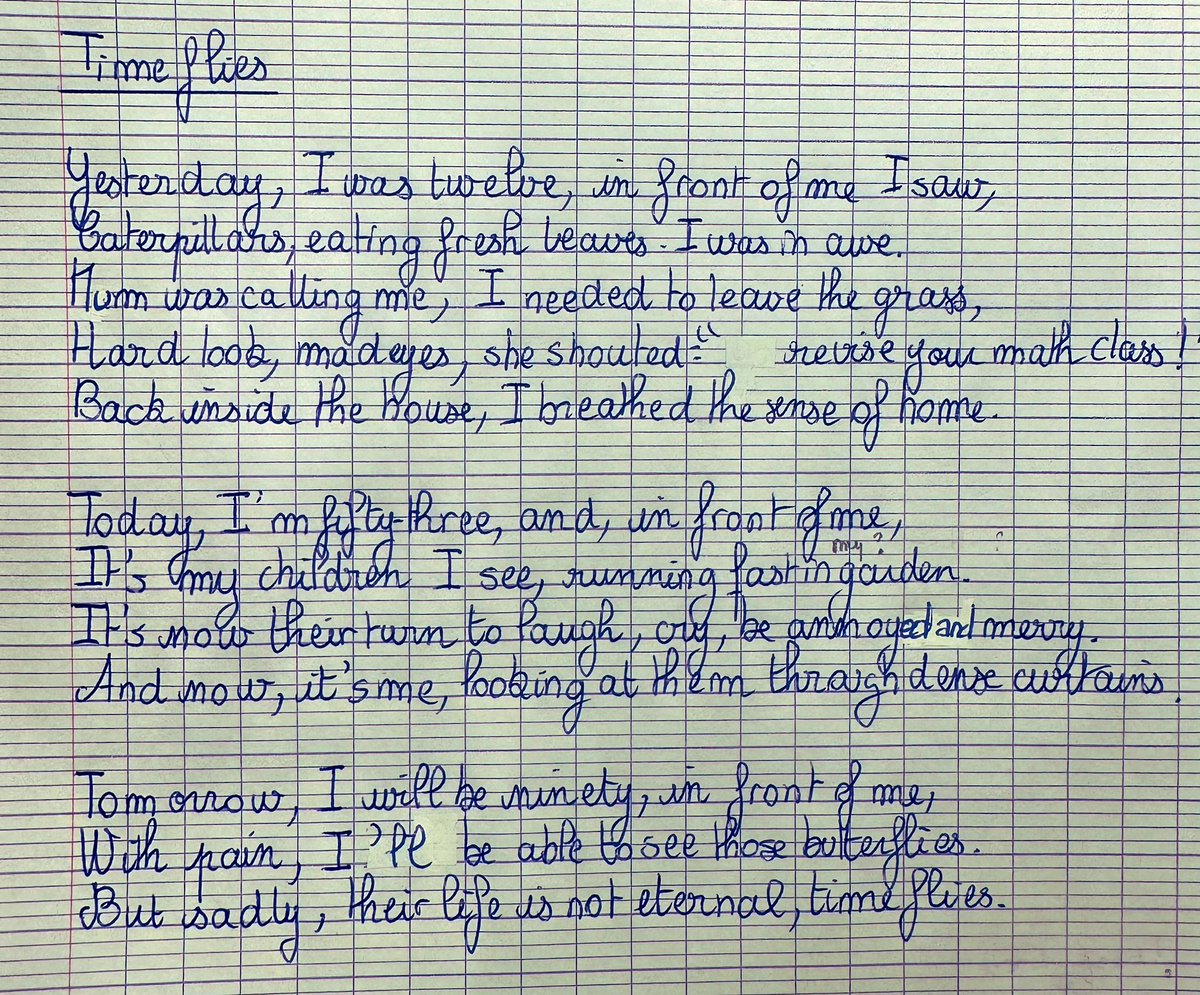 Time flies
Yesterday, I was twelve, in front of me I saw,
Caterpillars, eating fresh leaves. I was in awe.
Mum was calling me, I needed to leave the grass,
Hard look, mad eyes, she shouted : " revise your math class !
Back inside the house, I breathed the sense of home.
Today, I'm fifty-three, and, in front of me,
my ?
It's my children I see, running fast in garden.
It's now their turn to laugh, cry, be annoyed and merry.
And now, it's me, looking at them through dense curtains.
Tomorrow, I will be ninety, in front of me,
With pain, I'll be able to see those butterflies.
But sadly, their life is not eternal, time flies.